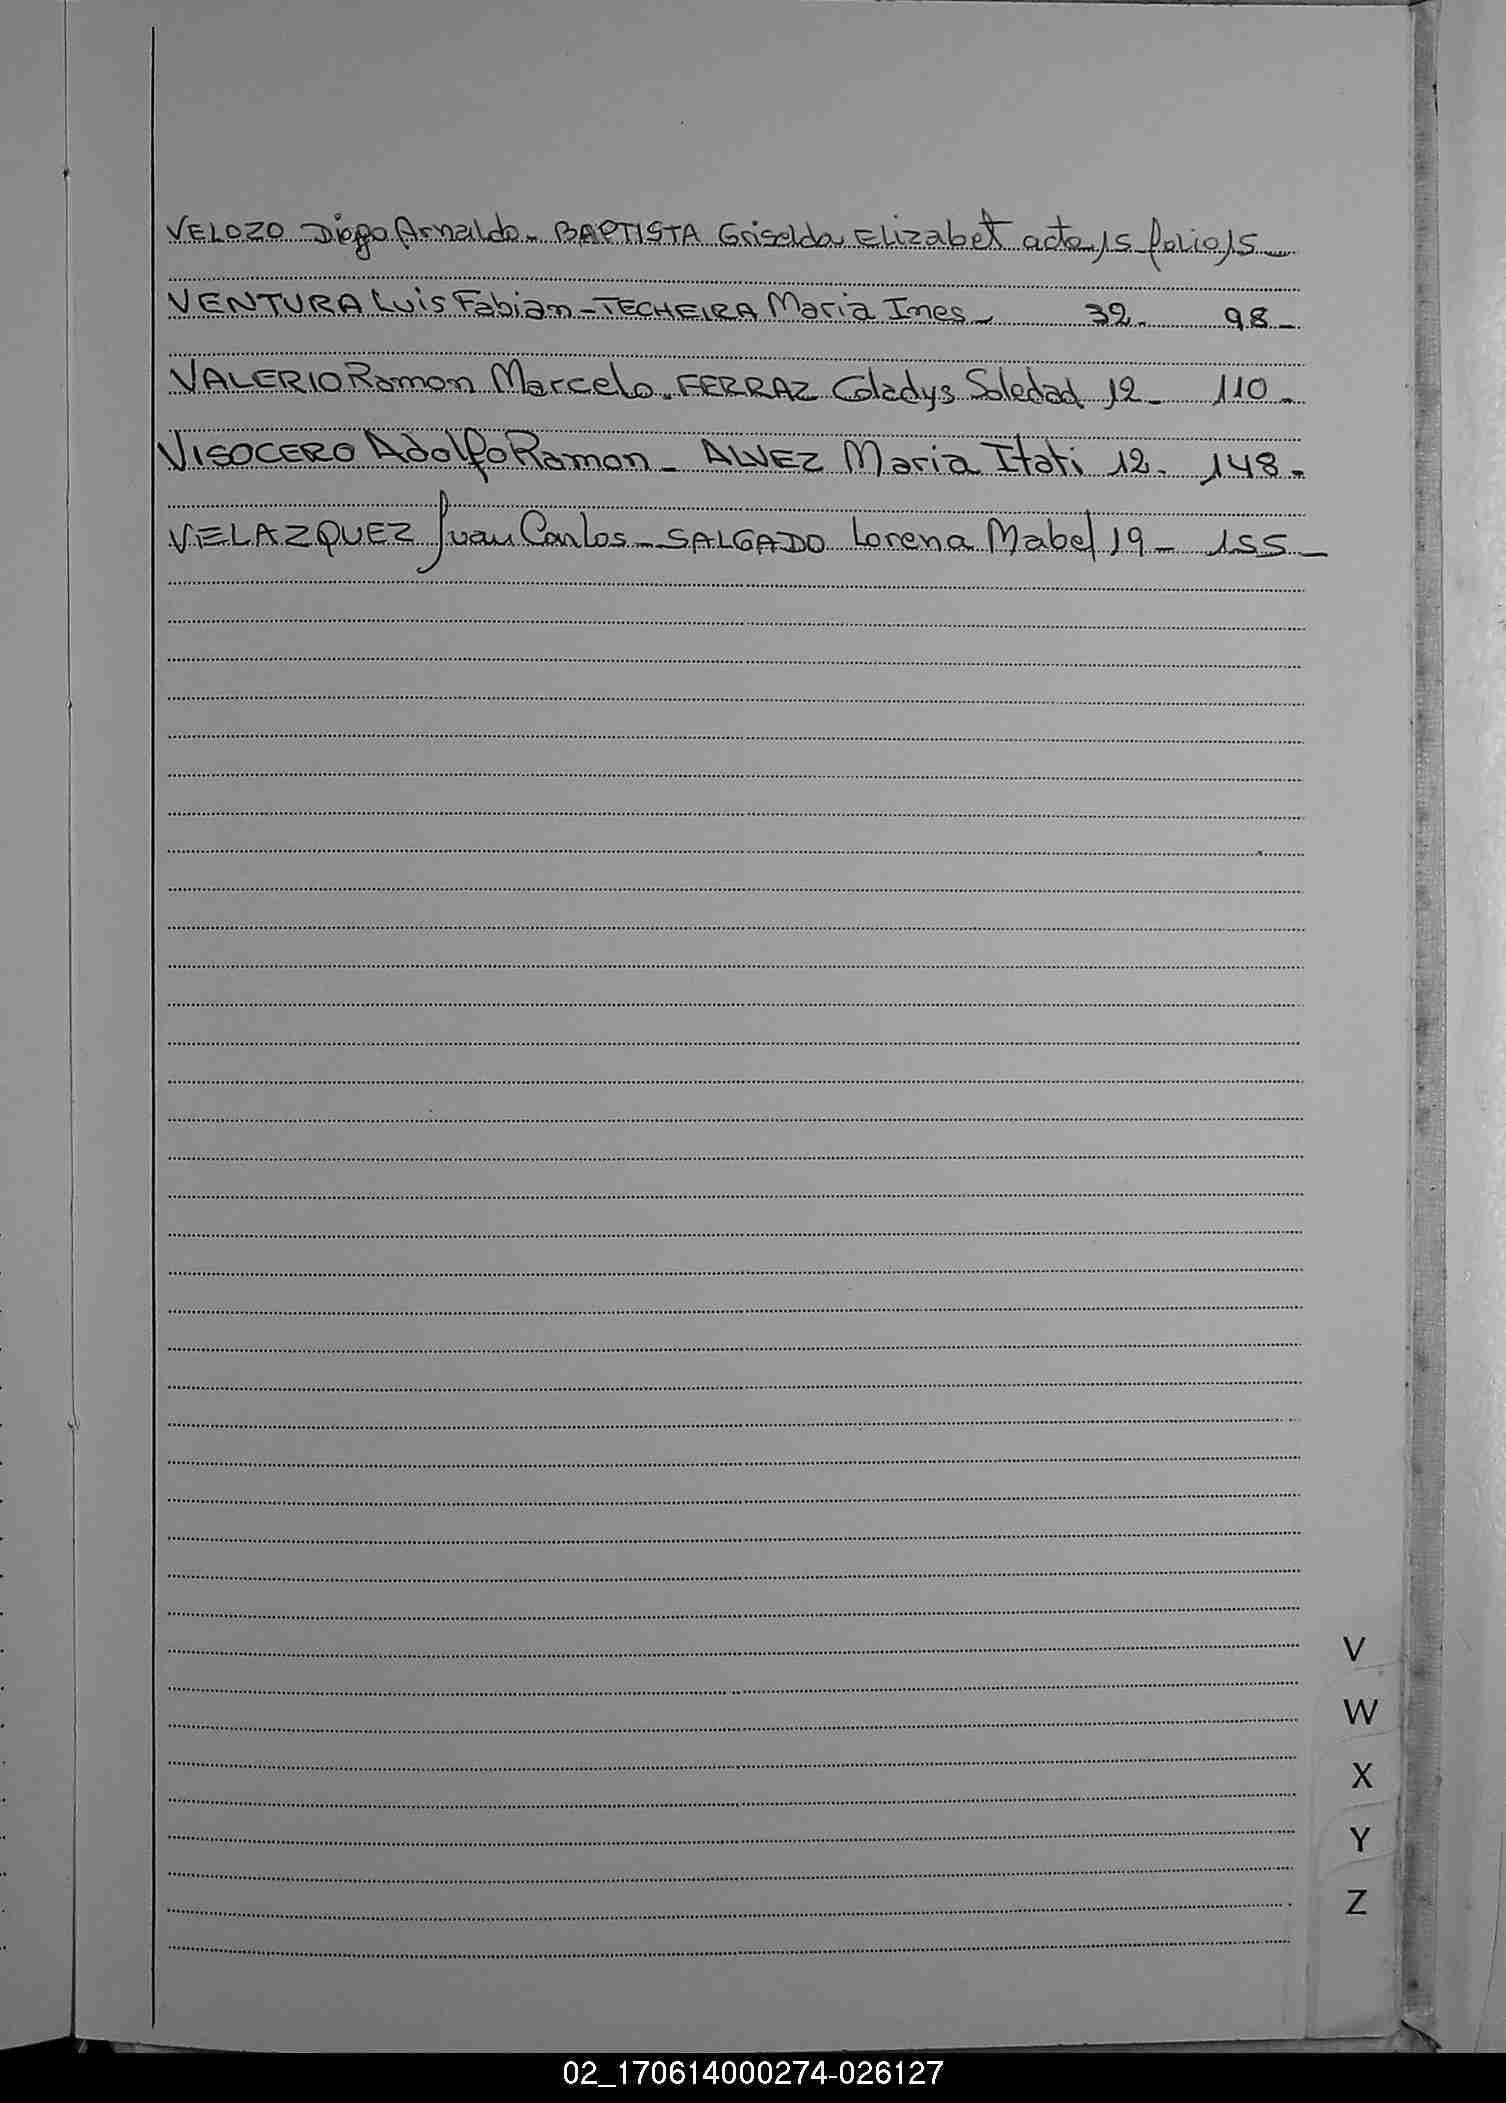 VELOZO Diego Arnaldo - BAPTISTA Griselda Elizabet acta 15 folio 15
VENTURA Luis Fabian - TECHEIRA Maria Ines - 32 - 98 -
VALERIO Ramon Marcelo - FERRAZ Gladys Soledad 12 - 110 -
VISOCERO Adolfo Ramon - ALVEZ Maria Itati 12 - 148 -
VELAZQUEZ Juan Carlos - SALGADO Lorena Mabel 19 - 155 -
V
W
X
Y
Z
02_170614000274-026127